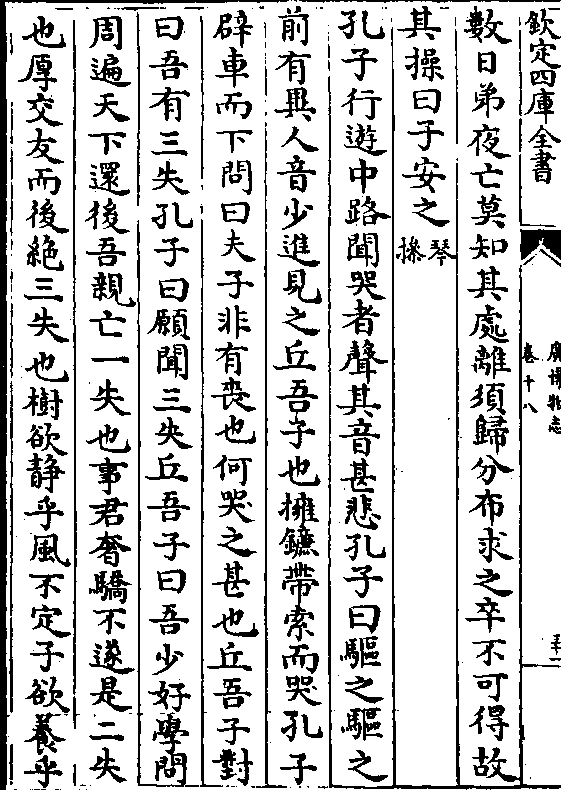 欽定四庫全書
廣博物志
卷十八
數日弟夜亡莫知其處離須歸分布求之卒不可得故
其操曰子安之琴操
孔子行遊中路聞哭者聲其音甚悲孔子曰驅之驅之
前有異人音少進見之丘吾子也擁鐮帶索而哭孔子
辟車而下問曰夫子非有喪也何哭之甚也丘吾子對
曰吾有三失孔子曰願聞三失丘吾子曰吾少好學問
周遍天下還後吾親亡一失也事君奢驕不遂是二失
也厚交友而後絶三失也樹欲静乎風不定子欲養乎